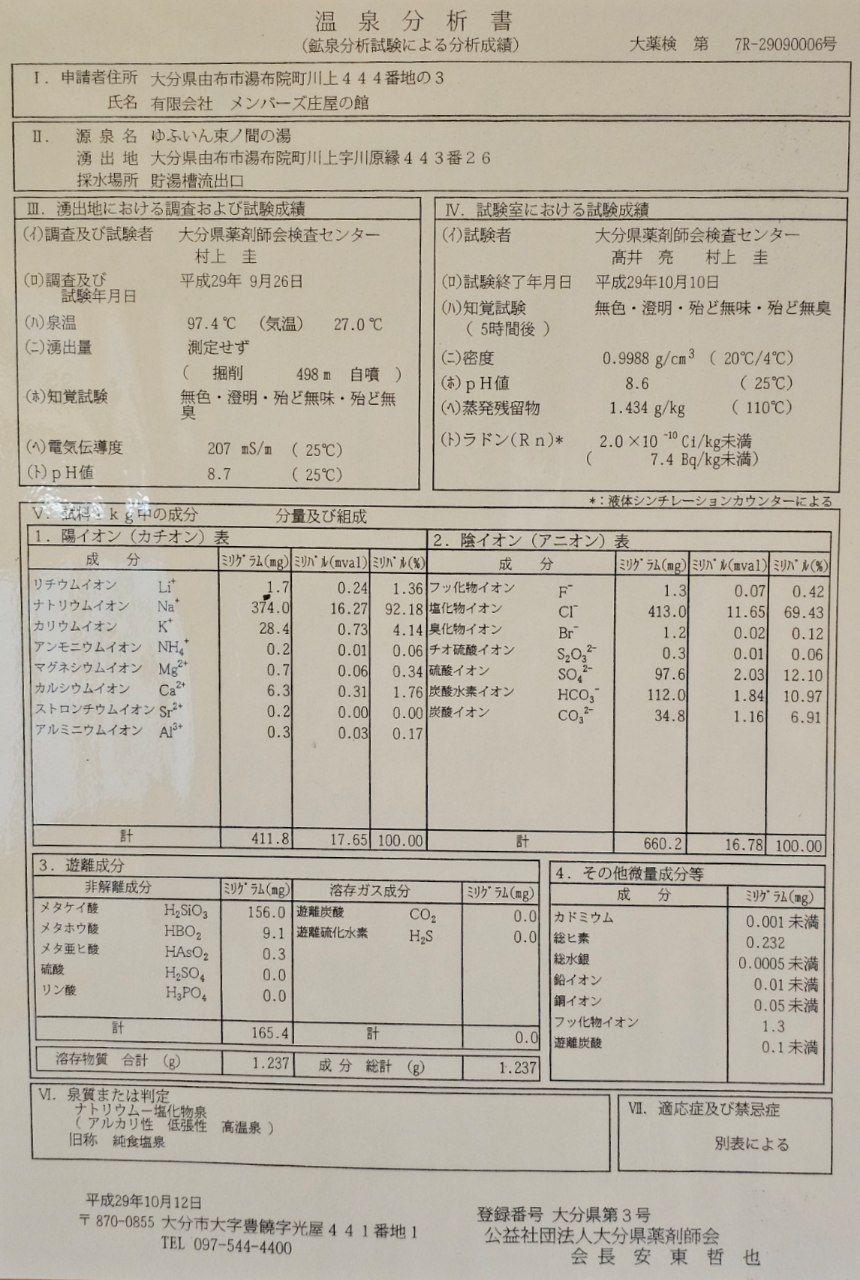 温泉分析書
(鉱泉分析試験による分析成績)
大薬検 第 7R-29090006号
Ⅰ. 申請者住所 大分県由布市湯布院町川上444番地の3
氏名 有限会社 メンバーズ庄屋の館
Ⅱ. 源泉名 ゆふいん束ノ間の湯
湧出地 大分県由布市湯布院町川上字川原縁443番26
採水場所 貯湯槽流出口
Ⅲ. 湧出地における調査および試験成績
(イ)調査及び試験者 大分県薬剤師会検査センター
村上 圭
(ロ)調査及び 平成29年 9月26日
試験年月日
(ハ)泉温 97.4℃ (気温) 27.0℃
(ニ)湧出量 測定せず
( 掘削 498m 自噴 )
(ホ)知覚試験 無色・澄明・殆ど無味・殆ど無
臭
(ヘ)電気伝導度 207 mS/m (25℃)
(ト)pH値 8.7 (25℃)
Ⅳ. 試験室における試験成績
(イ)試験者 大分県薬剤師会検査センター
髙井 亮 村上 圭
(ロ)試験終了年月日 平成29年10月10日
(ハ)知覚試験 無色・澄明・殆ど無味・殆ど無臭
( 5時間後 )
(ニ)密度 0.9988 g/cm3 ( 20℃/4℃)
(ホ)pH値 8.6 ( 25℃)
(ヘ)蒸発残留物 1.434 g/kg ( 110℃)
(ト)ラドン(Rn)* 2.0×10-10Ci/kg未満
( 7.4 Bq/kg未満)
*:液体シンチレーションカウンターによる
Ⅴ. 試料1kg中の成分 分量及び組成
1. 陽イオン(カチオン)表
成 分 ミリグラム(mg) ミリバル(mval) ミリバル(%)
リチウムイオン Li+ 1.7 0.24 1.36
ナトリウムイオン Na+ 374.0 16.27 92.18
カリウムイオン K+ 28.4 0.73 4.14
アンモニウムイオン NH4+ 0.2 0.01 0.06
マグネシウムイオン Mg2+ 0.7 0.06 0.34
カルシウムイオン Ca2+ 6.3 0.31 1.76
ストロンチウムイオン Sr2+ 0.2 0.00 0.00
アルミニウムイオン Al3+ 0.3 0.03 0.17
計 411.8 17.65 100.00
2. 陰イオン(アニオン)表
成 分 ミリグラム(mg) ミリバル(mval) ミリバル(%)
フッ化物イオン F- 1.3 0.07 0.42
塩化物イオン Cl- 413.0 11.65 69.43
臭化物イオン Br- 1.2 0.02 0.12
チオ硫酸イオン S2O32- 0.3 0.01 0.06
硫酸イオン SO42- 97.6 2.03 12.10
炭酸水素イオン HCO3- 112.0 1.84 10.97
炭酸イオン CO32- 34.8 1.16 6.91
計 660.2 16.78 100.00
3. 遊離成分
非解離成分 ミリグラム(mg) 溶存ガス成分 ミリグラム(mg)
メタケイ酸 H2SiO3 156.0 遊離炭酸 CO2 0.0
メタホウ酸 HBO2 9.1 遊離硫化水素 H2S 0.0
メタ亜ヒ酸 HAsO2 0.3
硫酸 H2SO4 0.0
リン酸 H3PO4 0.0
計 165.4 計 0.0
溶存物質 合計 (g) 1.237 成分 総計 (g) 1.237
4. その他微量成分等
成 分 ミリグラム(mg)
カドミウム 0.001 未満
総ヒ素 0.232
総水銀 0.0005 未満
鉛イオン 0.01 未満
銅イオン 0.05 未満
フッ化物イオン 1.3
遊離炭酸 0.1 未満
Ⅵ. 泉質または判定
ナトリウム-塩化物泉
(アルカリ性 低張性 高温泉)
旧称 純食塩泉
Ⅶ. 適応症及び禁忌症
別表による
平成29年10月12日
〒870-0855 大分市大字豊饒字光屋441番地1
TEL 097-544-4400
登録番号 大分県第3号
公益社団法人大分県薬剤師会
会長 安東哲也